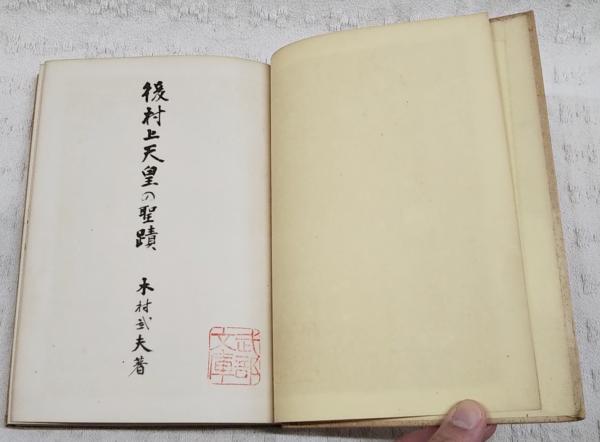 後村上天皇の聖蹟
木村武夫著
武部
文庫